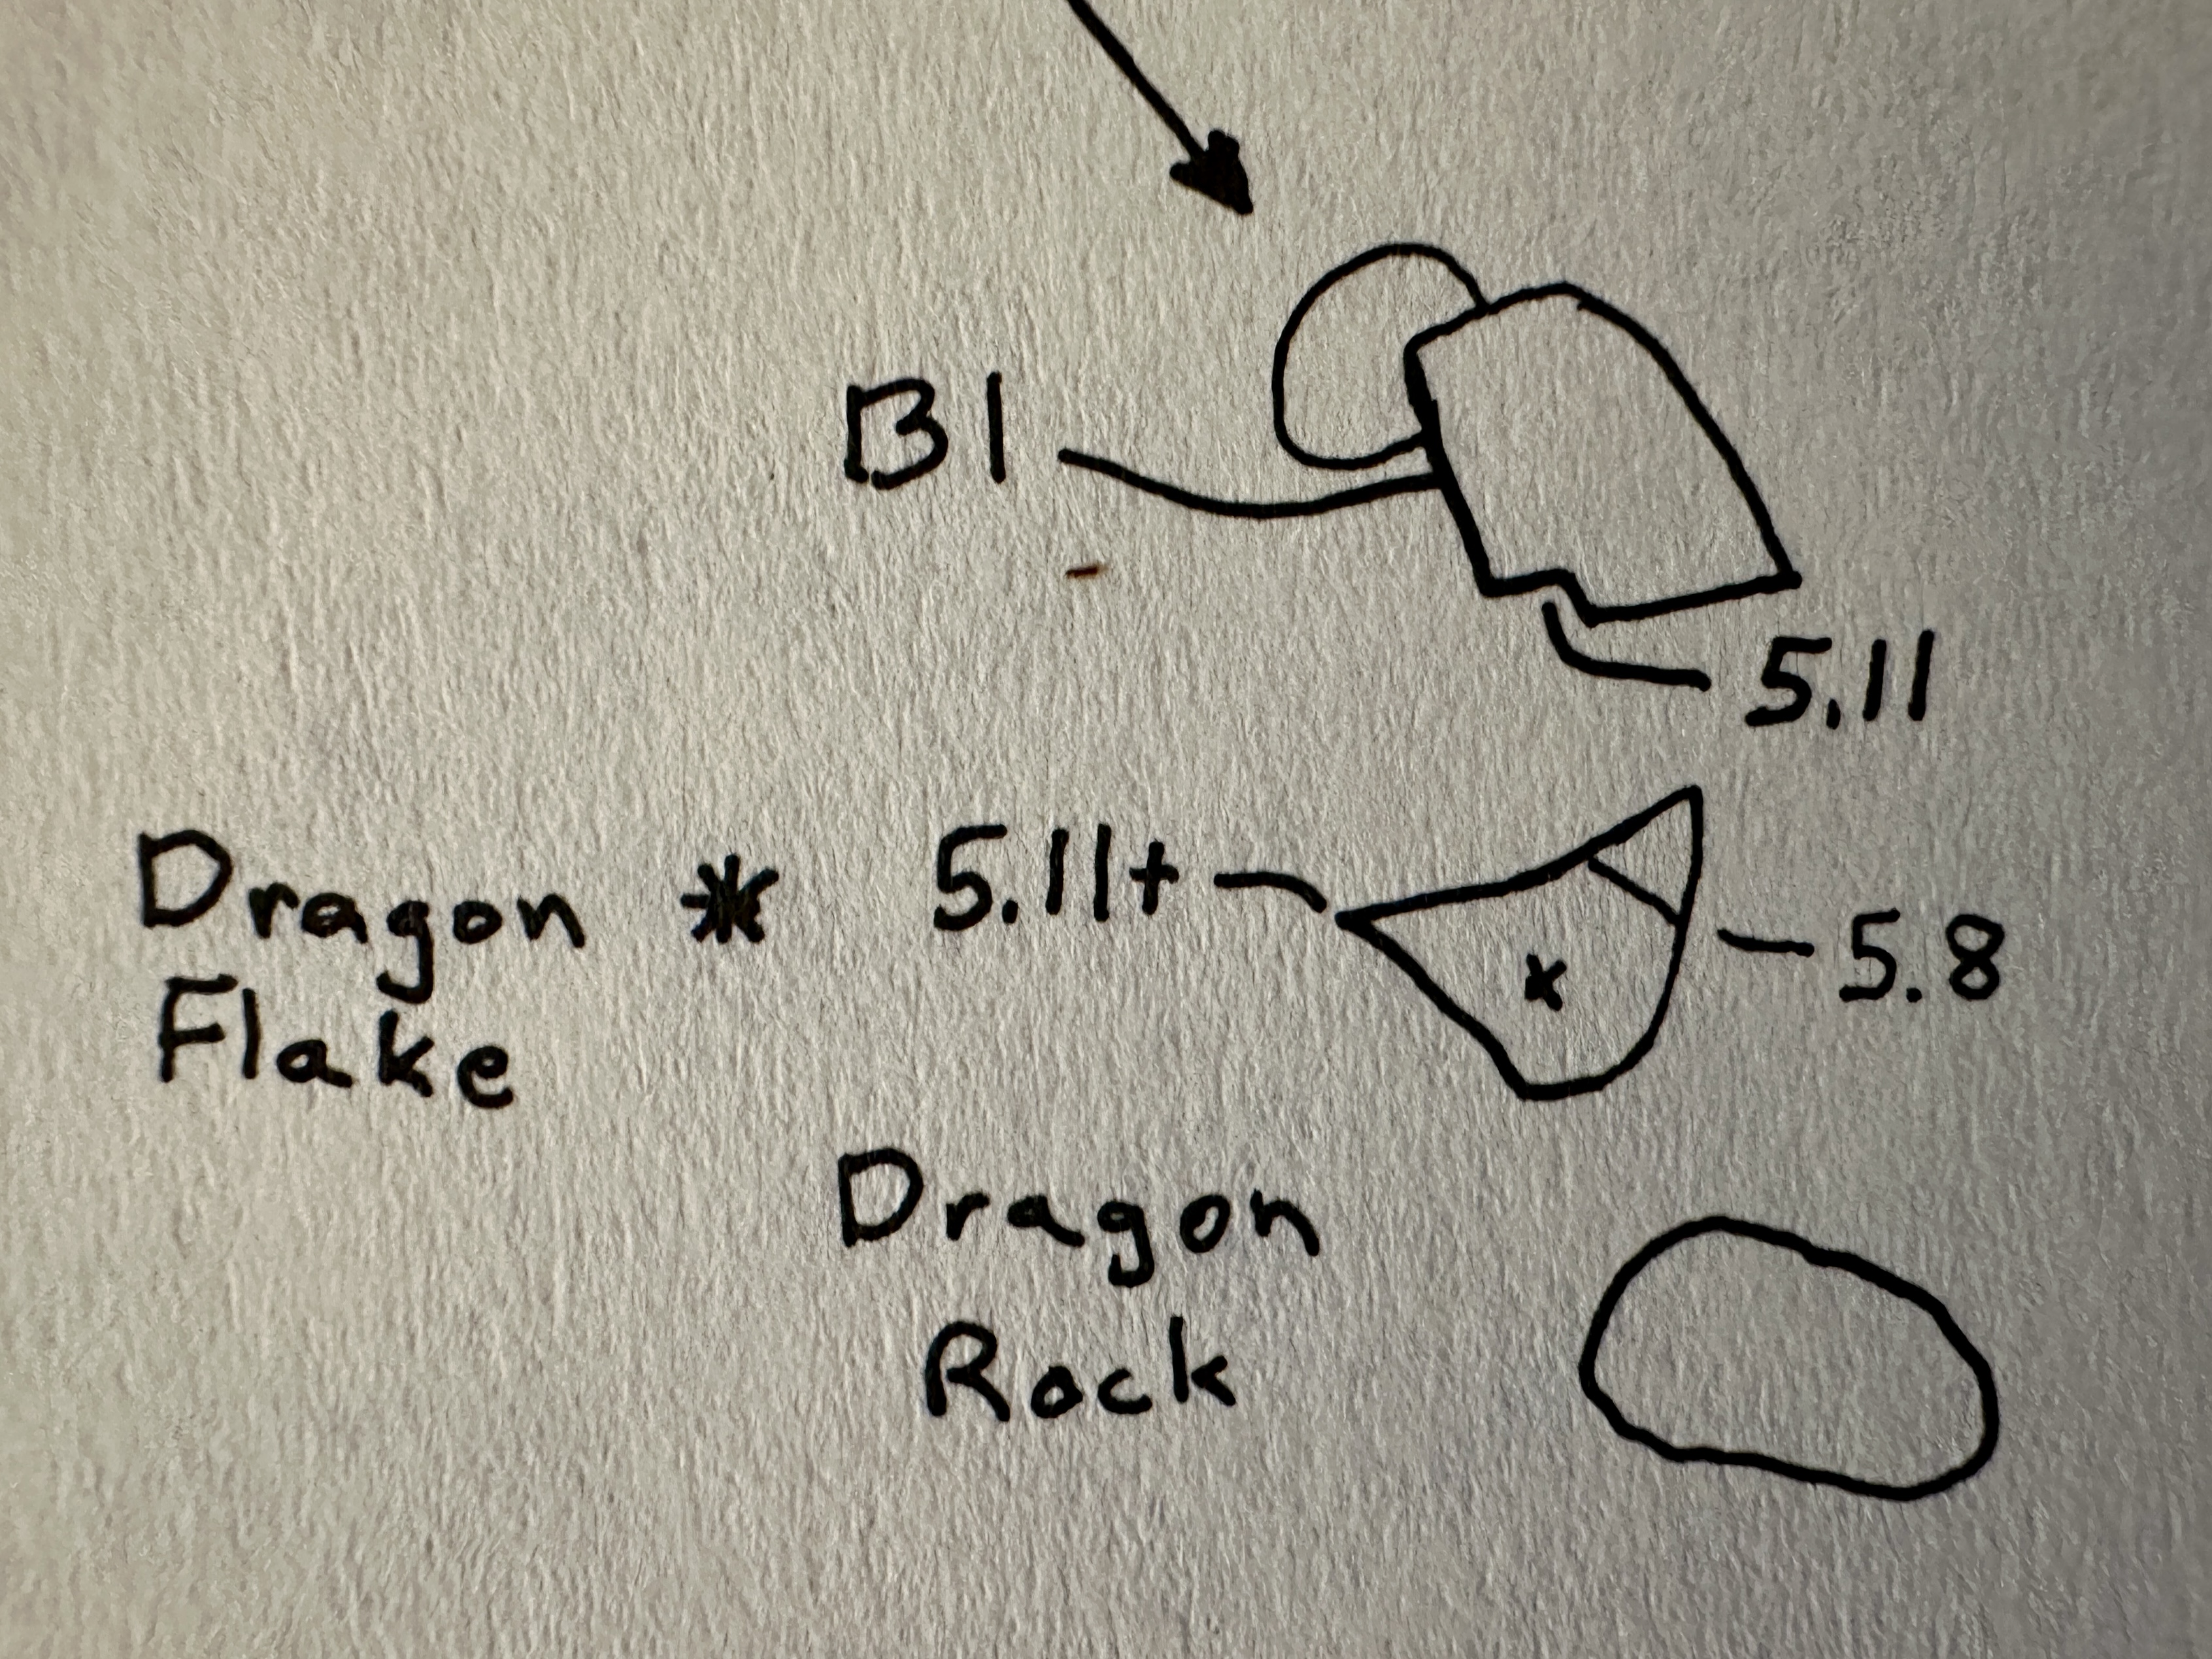 B1
5.11
Dragon * 5.11+
Flake
x
5.8
Dragon
Rock